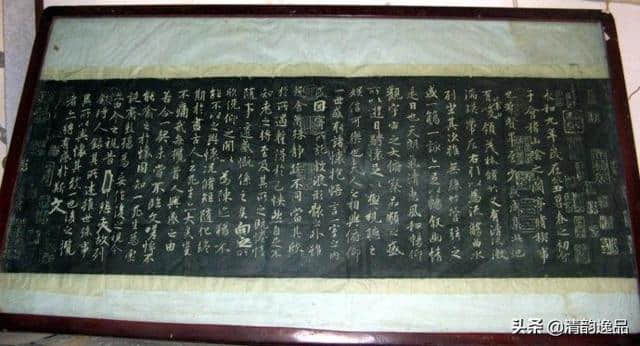 永和九年歲在癸丑暮春之初會
于會稽山陰之蘭亭脩禊事
也羣賢畢至少長咸集此地
有崇山峻領茂林脩竹又有清流激
湍暎帶左右引以為流觴曲水
列坐其次雖無絲竹管弦之
盛一觴一詠亦足以暢叙幽情
是日也天朗氣清惠風和暢仰
觀宇宙之大俯察品類之盛
所以遊目騁懷足以極視聽之
娛信可樂也夫人之相與俯仰
一世或取諸懷抱悟言一室之內
或因寄所託放浪形骸之外雖
趣舍萬殊靜躁不同當其欣
於所遇蹔得於己快然自足不
知老之將至及其所之既惓情
隨事遷感慨係之矣向之所
欣俛仰之閒以為陳迹猶不
能不以之興懷況脩短隨化終
期於盡古人云死生亦大矣豈
不痛哉每攬昔人興感之由
若合一契未嘗不臨文嗟悼不
能喻之於懷固知一死生為虛
誕齊彭殤為妄作後之視今
亦由今之視昔悲夫故列
敘時人錄其所述雖世殊事
異所以興懷其致一也後之攬
者亦將有感於斯文
头条 @清韵逸品